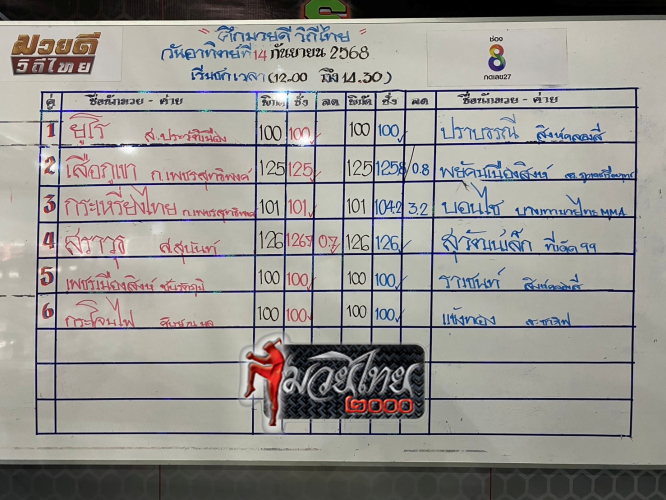 มวยดี
วิถีไทย
ศึกมวยดี วิถีไทย
วันอาทิตย์ที่ 14 กันยายน 2568
เริ่มชกเวลา (12.00 ถึง 14.30)
ช่อง
8
กดเลข27
คู่ ชื่อนักมวย - ค่าย พิกัด ชั่ง ลด พิกัด ชั่ง ลด ชื่อนักมวย - ค่าย
1 ยูโร ส.ประวัติเมือง 100 100 100 100 ปราบธรณี สิงห์คลองสี่
2 เสือภูเขา ก.เพชรสุทธิพงศ์ 125 125 125 125.8 0.8 พยัคฆ์เมืองสิงห์
3 กะเหรี่ยงไทย ก.เพชรสุทธิพงศ์ 101 101 101 104.2 3.2 บอนไซ บางแสนมวยไทย MMA
4 สราวุธ ส.สุนันท์ 126 126.7 0.7 126 126 สุวัฒน์เล็ก ที่เด็ด 99
5 เพชรเมืองสิงห์ 100 100 100 100 ราเชนทร์ สิงห์คลองสี่
6 กระโจนไฟ 100 100 100 100 แข้งทอง
มวยไทย
๒๐๐๐